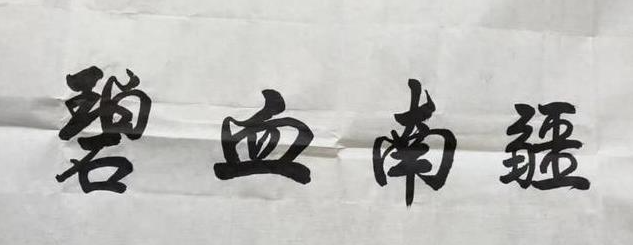 碧血南疆